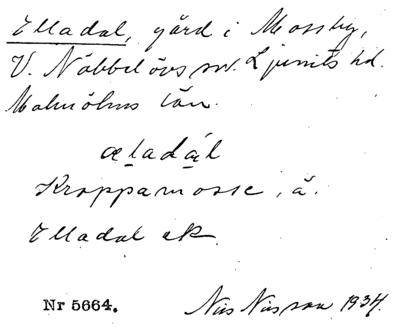 Elladal, gård i Mossby,
V. Nöbbelövs sn. Ljunits hd.
Malmöhus län.
æladál
Kroppamosse, ä.
Elladal ek
Nr 5664. Nils Nilsson 1934.